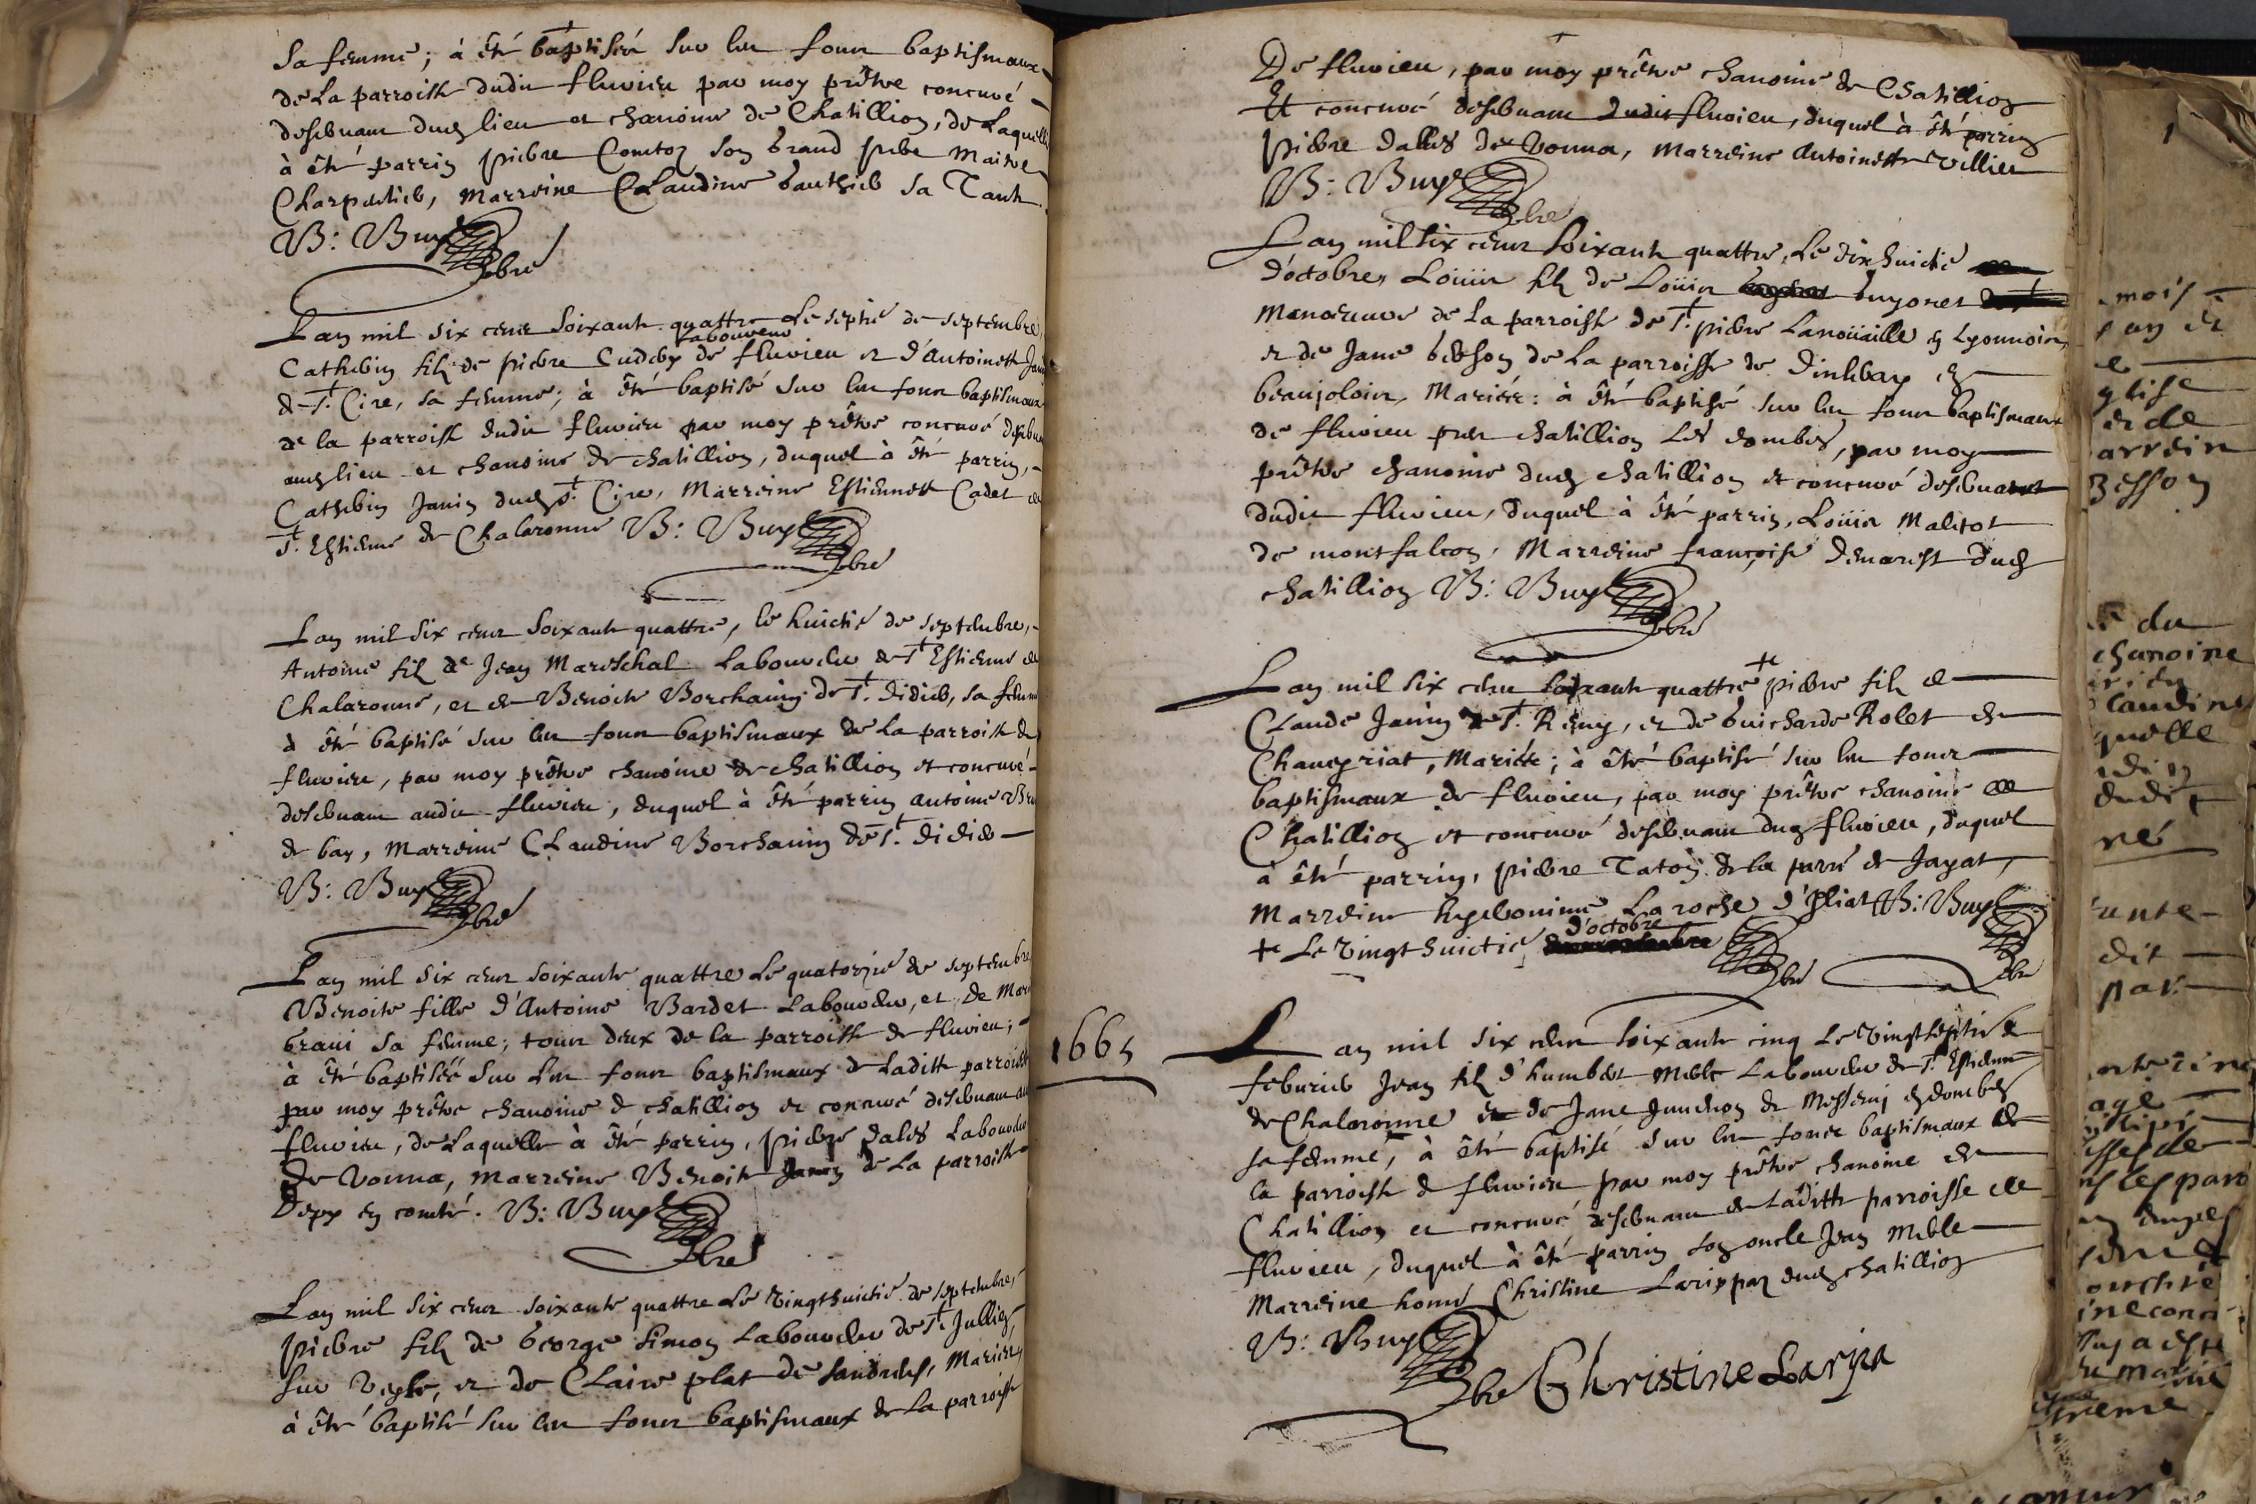 Sa femme; à êté baptiséé sur les fons baptismaux
de La parroisse dudit fluvieu par moy prêtre concuré
deservant dudt lieu et chanoine de Chatillion, de Laquelle
à êté parrin pierre Comtoz son Grand pere maitre
Charpentier, Marreine CLaudine Gauthier sa Tante.
B: Buyet pbre
Lan mil six cens soixante quattre Le septié de septembre,
laboureur
Catherin filz de pierre Cuderx de fluvieu et d'Antoinette Jan
de St. Cire, sa femme; à êté baptisé sur les fons baptismaux
de la parroisse dudit fluvieu par moy prêtre concuré deserva
audt lieu et chanoine de chatillion, duquel à êté parrin,
Catherin Janin dudt St. Cire, Marreine Estiennette Cadet de
St. Estienne de Chalaronne B: Buyet
pbre
Lan mil six cens soixante quattre, le huictié de septembre,
Antoine filz de Jean Mareschal Laboureur de St Estienne de
Chalaronne, et de Benoite Borchanin de St. Didier, sa femme
à êté baptisé sur les fons baptismaux de La parroisse de
fluvieu, par moy prêtre chanoine de chatillion et concuré
deservant audit fluvieu, duquel à êté parrin antoine Bru
de bay, Marreine CLaudine Borchanin de St. Didier
B: Buyet
pbre
Lan mil six cens soixante quattre Le quatorzié de septembre
Benoite fille d'Antoine Bardet Laboureur, et de Mari
Gravi sa femme; tous deux de la parroisse de fluvieu;
à êté baptiséé sur Les fons baptismaux de Laditte parroisse
par moy prêtre chanoine de chatillion et concuré deservant au
fluvieu, de Laquelle à êté parrin, pierre Dales Laboureur
de Vonna, Marreine Benoite Janin de La parroisse
Depx en comté. B: Buyet
pbre
Lan mil six cens soixante quattre Le vingthuictié de septembre,
pierre filz de George Simon Laboureur de St Jullien,
sur Vesle, et de CLaire plat de Sandrens, Mariés,
à êté baptisé sur les fons baptismaux de La parroisse
De fluvieu, par moy prêtre chanoine de Chatillion
Et concuré deservant dudit fluvieu, duquel à êté parrin
pierre Dalles de Vonna, Marreine Antoinette Villier
B: Buyet
pbre
Lan mil six cens soixante quattre, Le dix huictié
d'octobre, Loüis filz de Loüis Guyonet
Manoeuvre de La parroisse de St. pierre Lanoüaille en Lyonnois,
et de Jane berson de La parroisse de Dinlevay en
beaujolois, Mariés: à êté baptisé sur les fons baptismaux
de fluvieu pres chatillion Les dombes, par moy
prêtre chanoine dudt chatillion et concuré deservant
dudit fluvieu, duquel à êté parrin, Loüis Malicot
de montfalcon, Marreine françoise Demarest dudt
chatillion B: Buyet
pbre
Lan mil six cens soixante quattre + pierre filz de
CLaude Janin de St. Remy, et de Guicharde Rolet de
Chaneyriat, Mariés; à êté baptisé sur les fons
baptismaux de fluvieu, par moy prêtre chanoine de
Chatillion et concuré deservant dudt fluvieu, duquel
à êté parrin, pierre Taton de la parré de Jayat,
Marreine hyeronime La roche d'Illiat B: Buyet
d'octobre
+ Le vingt huictié
pbre
pbre
1665
Lan mil six cens soixante cinq Le vingtseptié de
feburier Jean filz d'humbert Merle Laboureur de St. Estienne
de Chalaronne et de Jane Junchon de Messeny en dombes
sa femme, à êté baptisé sur les fons baptismaux de
la parroisse de fluvieu par moy prêtre chanoine de
Chatillion et concuré, deservant de Laditte parroisse de
fluvieu, duquel à êté parrin son oncle Jean Merle
Marreine honné Christine Larippaz dudt chatillion
B: Buyet
pbre Christine Laripa